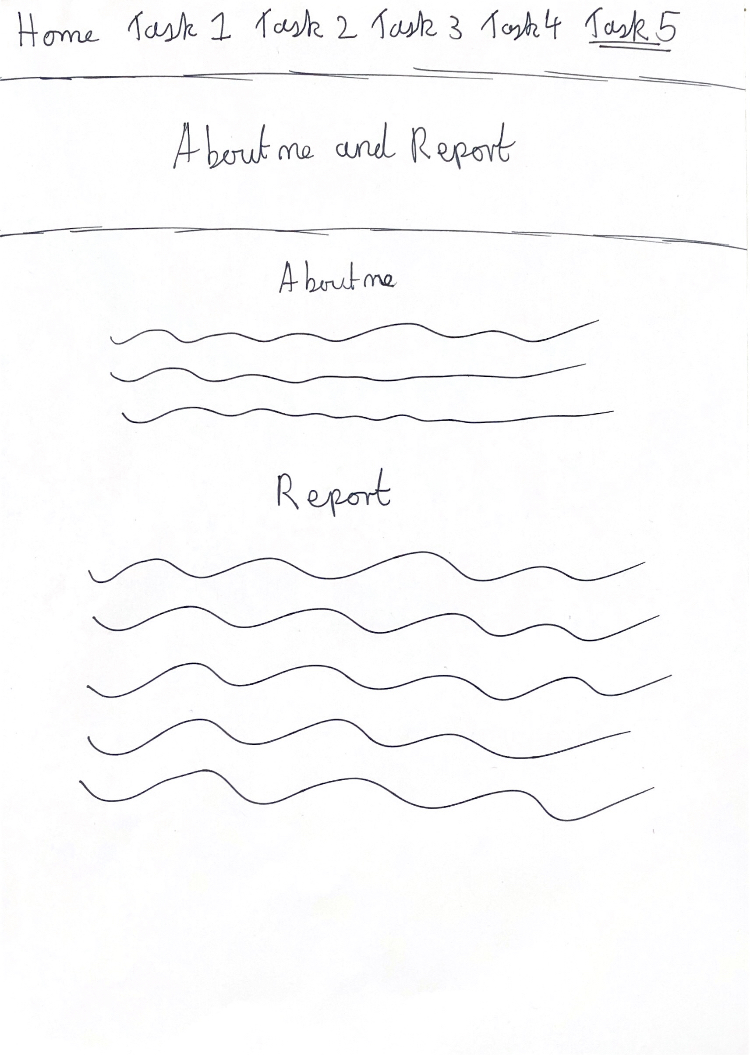 Home Task 1 Task 2 Task 3 Task 4 Task 5
About me and Report
About me
Report